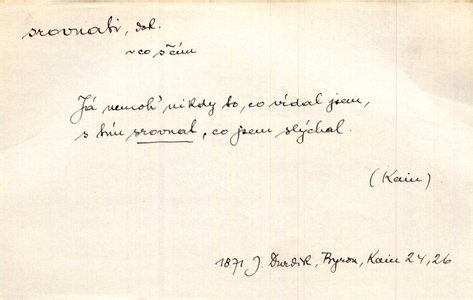 srovnati, dok.
~ co s čím
Já nemoh' nikdy to, co vídal jsem,
s tím srovnat, co jsem slýchal.
(Kain)
1871 J. Durdík, Byron, Kain 24, 26